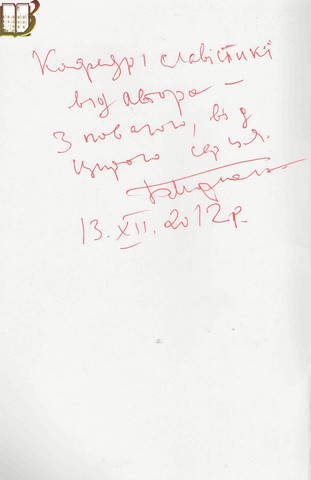 Кафедрі славістики
від автора –
З повагою, від
щирого серця.
13. XII. 2012 р.